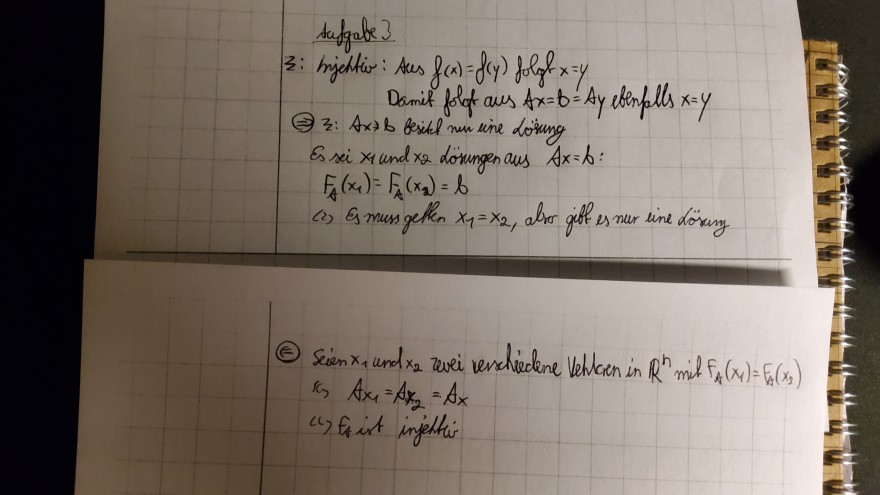 Aufgabe 3
Z: Injektiv: Aus f(x)=f(y) folgt x=y
Damit folgt aus Ax=b=Ay ebenfalls x=y
⇒ Z: Ax=b besitzt nur eine Lösung
Es sei x₁ und x₂ Lösungen aus Ax=b:
F_A(x₁)=F_A(x₂)=b
(=> Es muss gelten x₁=x₂, also gibt es nur eine Lösung
⇐ Seien x₁ und x₂ zwei verschiedene Vektoren in ℝⁿ mit F_A(x₁)=F_A(x₂)
Ax₁=Ax₂=Ax
F_A ist injektiv